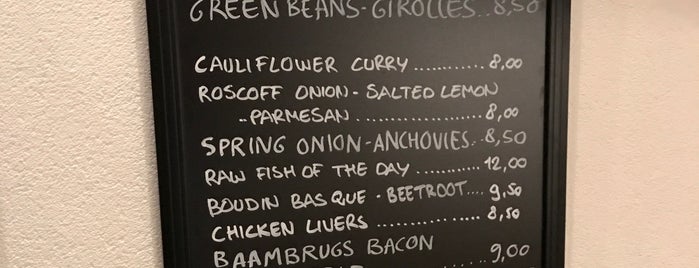 GREEN BEANS-GIROLLES..8,50
CAULIFLOWER CURRY...........8,00
ROSCOFF ONION - SALTED LEMON
- PARMESAN...................8,00
SPRING ONION-ANCHOVIES..8,50
RAW FISH OF THE DAY...........12,00
BOUDIN BASQUE - BEETROOT....9,50
CHICKEN LIVERS..................8,50
BAAMBRUGS BACON
9,00